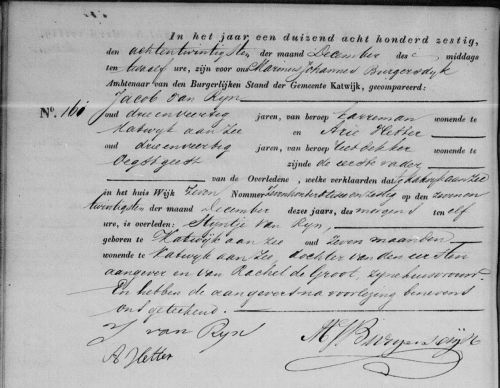 In het jaar een duizend acht honderd zestig,
den achtentwintigsten der maand December des middags
ten twaalf ure, zijn voor ons Marinus Johannes Burgersdyk
Ambtenaar van den Burgerlijken Stand der Gemeente Katwijk, gecompareerd:
No. 160 Jacob van Ryn
oud drieenveertig jaren, van beroep wonende te
Katwyk aan Zee en Arie Hetter
oud drieenveertig jaren, van beroep wonende te
Oegstgeest zijnde de eerste vader
van de Overledene, welke verklaarden dat te Katwyk aan Zee
in het huis Wijk Zeven Nommer op den zevenen
twintigsten der maand December dezes jaars, des morgens ten elf
ure, is overleden: Styntje van Ryn,
geboren te Katwyk aan Zee oud zeven maanden
wonende te Katwyk aan Zee, dochter van den eersten
aangever en van Rachel de Groot, zyne huisvrouw.
En hebben de aangevers na voorlezing benevens
ons geteekend.
J van Ryn M J Burgersdyk
A Hetter